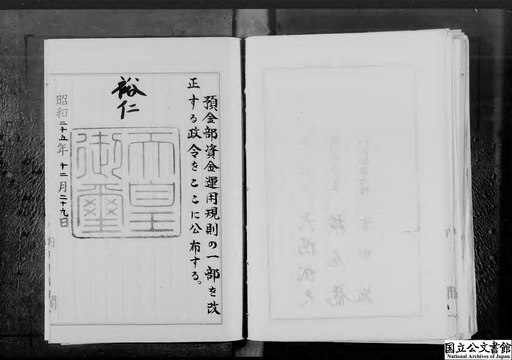 預金部資金運用規則の一部を改
正する政令をここに公布する。
裕仁
天皇
御璽
昭和二十五年十二月二十九日
国立公文書館
National Archives of Japan